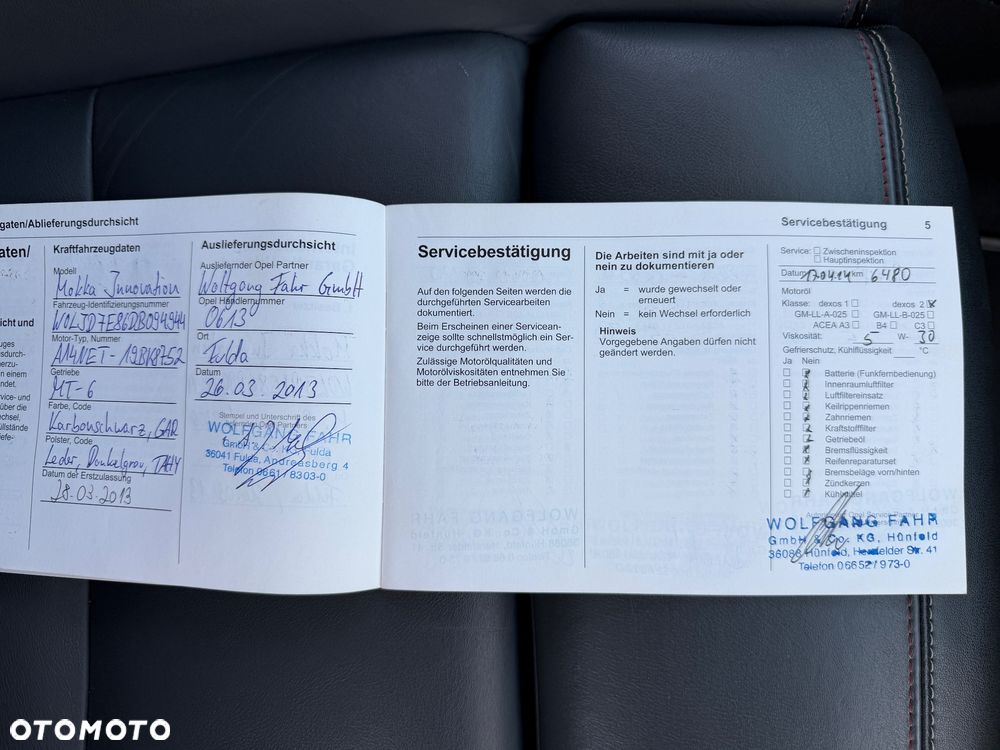 gaten/Ablieferungsdurchsicht
aten/
icht und
Kraftfahrzeugdaten
Modell
Mokka Innovation
Fahrzeug-Identifizierungsnummer
W0LJD7E86DB094944
Motor-Typ, Nummer
A14NET-19BK8752
Getriebe
MT-6
Farbe, Code
Karbonschwarz, GAR
Polster, Code
Leder, Dunkelgrau, TAHY
Datum der Erstzulassung
28.03.2013
Auslieferungsdurchsicht
Ausliefernder Opel Partner
Wolfgang Fahr GmbH
Opel Händlernummer
0613
Ort
Fulda
Datum
26.03.2013
Stempel und Unterschrift des
WOLFGANG FAHR
36041 Fulda, Andreasberg 4
Telefon 0661/8303-0
Servicebestätigung 5
Servicebestätigung
Auf den folgenden Seiten werden die
durchgeführten Servicearbeiten
dokumentiert.
Beim Erscheinen einer Servicean-
zeige sollte schnellstmöglich ein Ser-
vice durchgeführt werden.
Zulässige Motorölqualitäten und
Motorölviskositäten entnehmen Sie
bitte der Betriebsanleitung.
Die Arbeiten sind mit ja oder
nein zu dokumentieren
Ja = wurde gewechselt oder
erneuert
Nein = kein Wechsel erforderlich
Hinweis
Vorgegebene Angaben dürfen nicht
geändert werden.
Service: Zwischeninspektion
Hauptinspektion
Datum 17.04.14 km 6480
Motoröl
Klasse: dexos 1 dexos 2
GM-LL-A-025 GM-LL-B-025
ACEA A3 B4 C3
Viskosität: 5 W- 30
Gefrierschutz, Kühlflüssigkeit °C
Ja Nein
Batterie (Funkfernbedienung)
Innenraumluftfilter
Luftfiltereinsatz
Keilrippenriemen
Zahnriemen
Kraftstofffilter
Getriebeöl
Bremsflüssigkeit
Reifenreparaturset
Bremsbeläge vorn/hinten
Zündkerzen
Kühlmittel
WOLFGANG FAHR
GmbH & Co. KG, Hünfeld
36088 Hünfeld, Hersfelder Str. 41
Telefon 06652/973-0
OTOMOTO